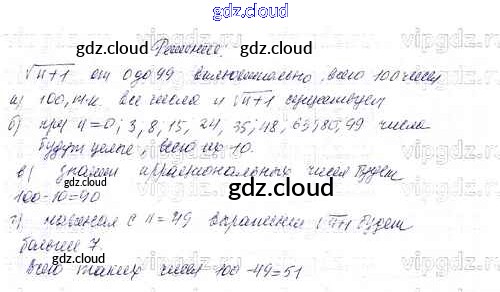 gdz.cloud
Решение.
√n+1 от 0 до 99 включительно, всего 100 чисел
а) 100, т.к. все числа и √n+1 существует
б) при n=0; 3, 8, 15, 24, 35, 48, 63, 80, 99 числа
будут целые, всего их 10.
в) значит иррациональных чисел будет
100-10=90
г) начиная с n=49 выражения √n+1 будет
больше 7.
Всего таких чисел 100-49=51